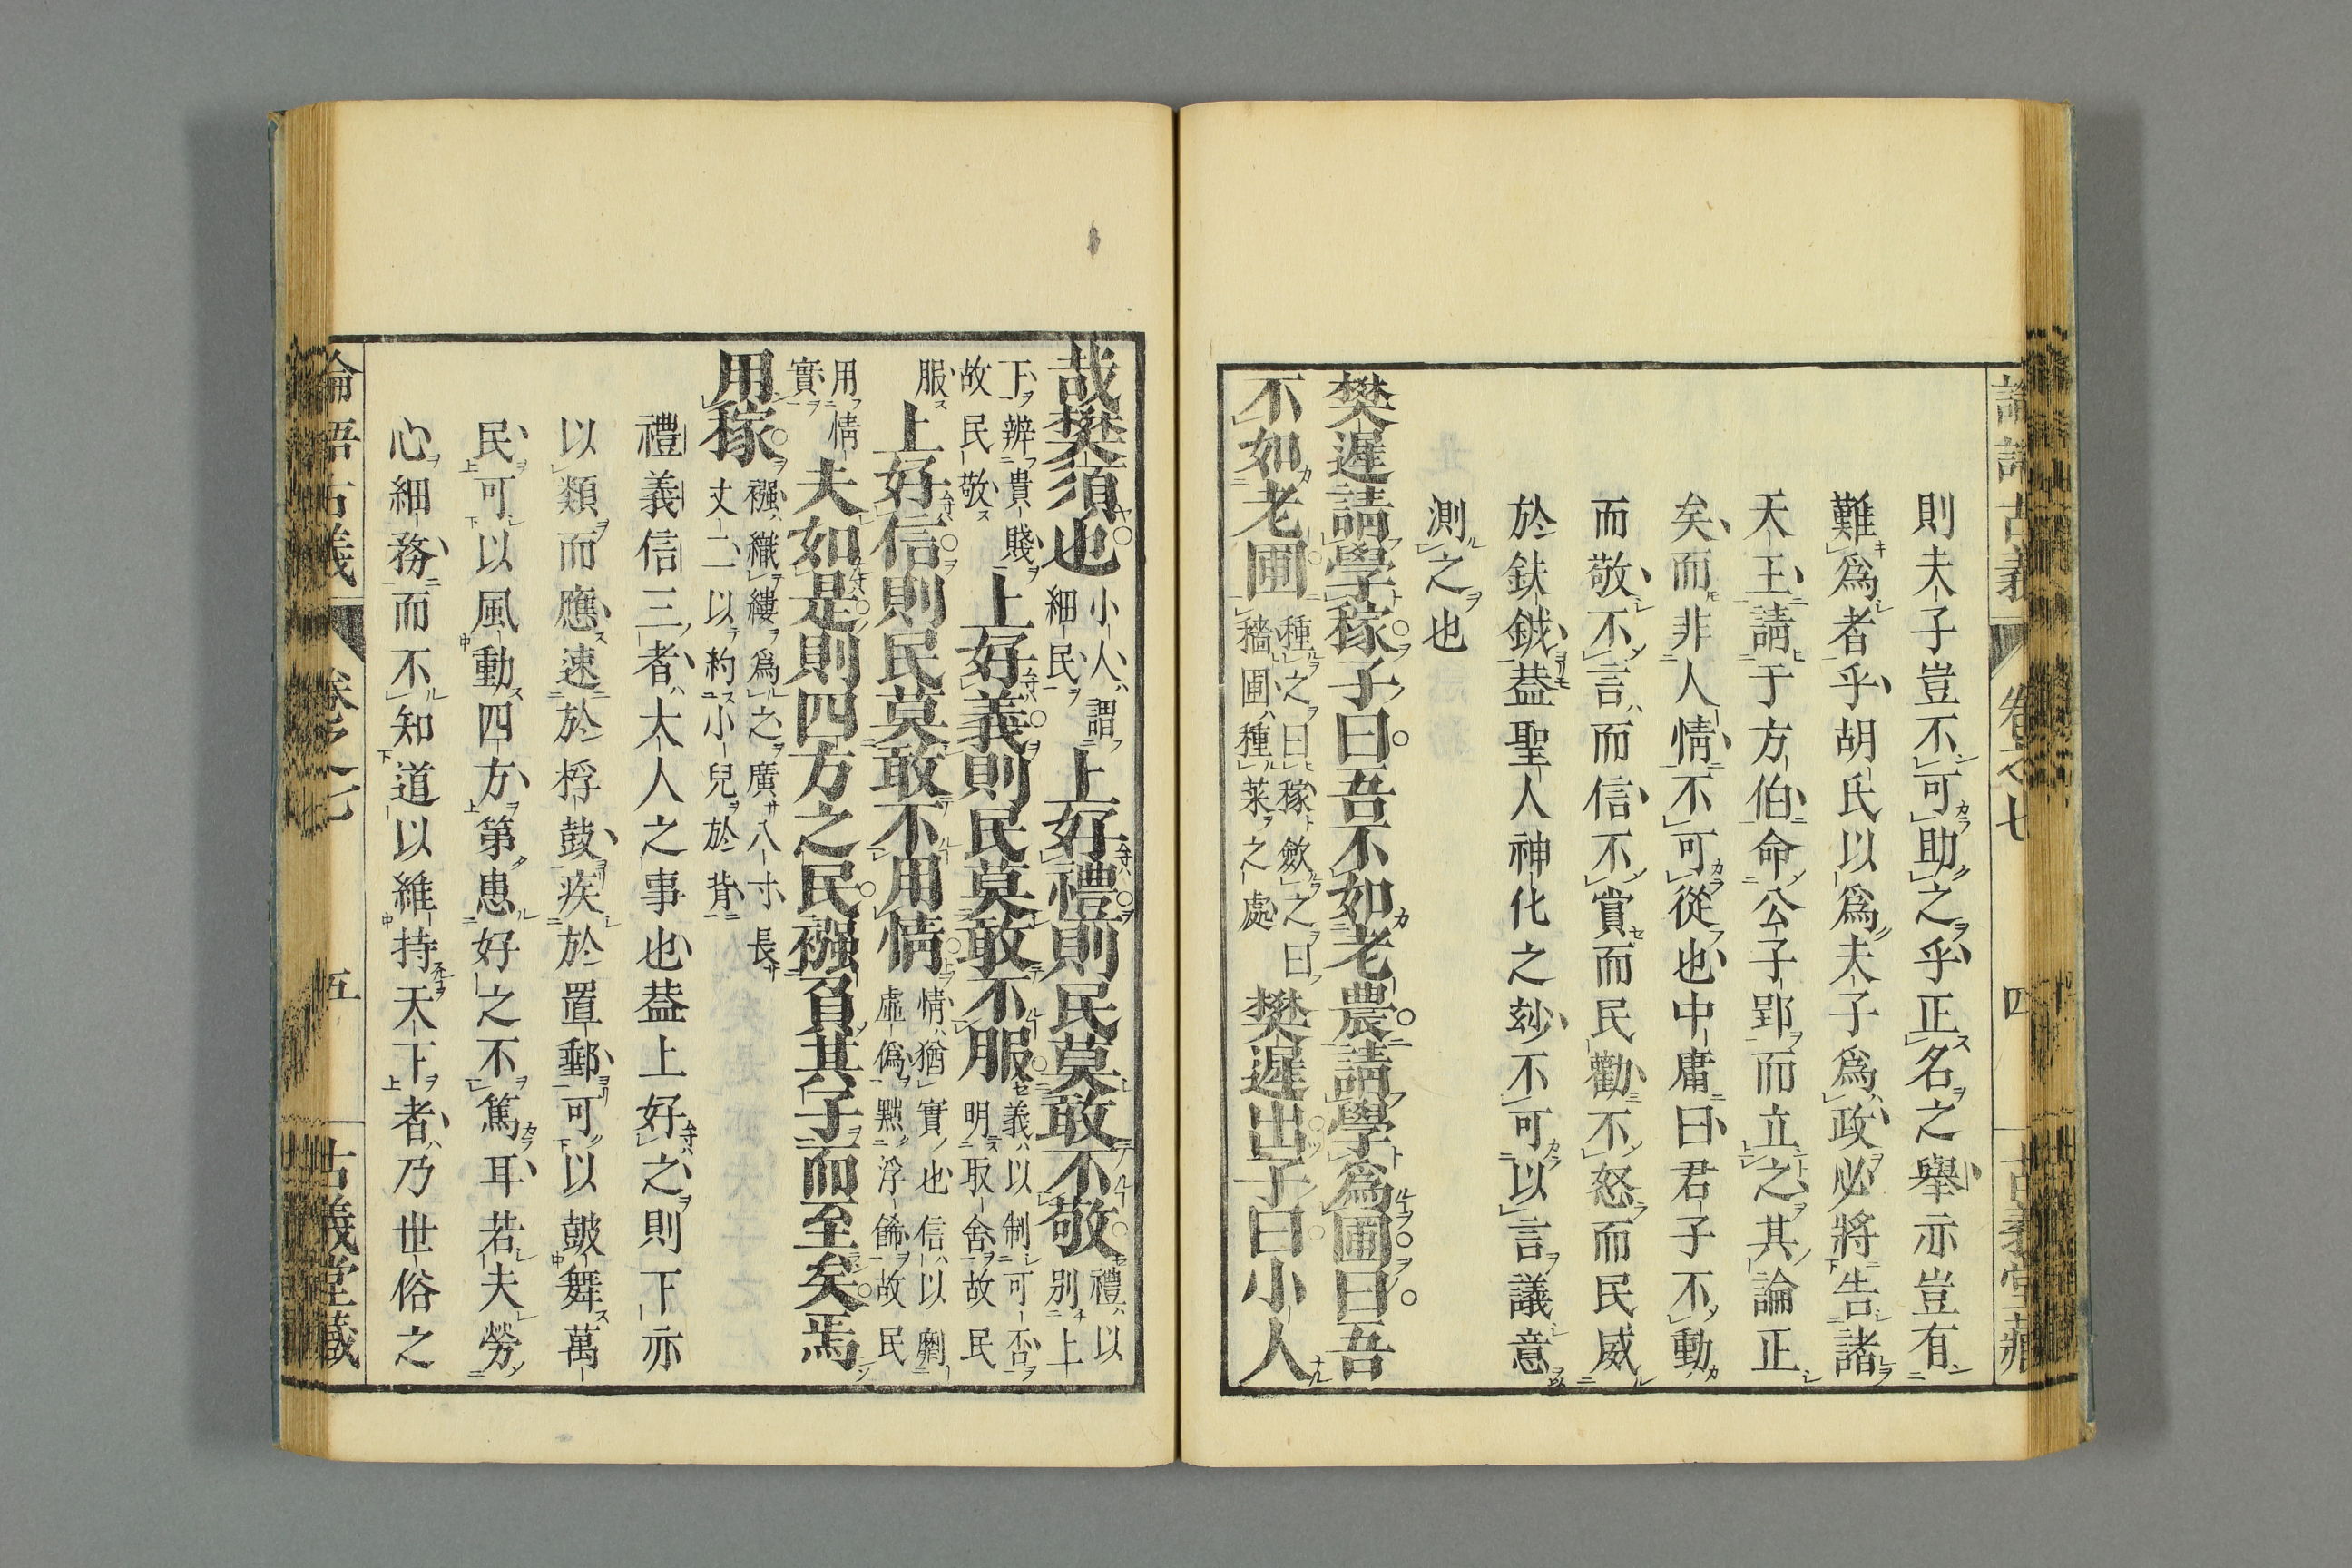 則夫子豈不可助之乎正名之舉亦豈有
難爲者乎胡氏以爲夫子爲政必將告諸
天王請于方伯命公子郢而立之其論正
矣而非人情不可從也中庸曰君子不動
而敬不言而信不賞而民勸不怒而民威
於鈇鉞葢聖人神化之玅不可以言議意
測之也
樊遲請學稼子曰吾不如老農請學爲圃曰吾
不如老圃
種之曰稼斂之曰
穡圃種菜之處
樊遲出子曰小人
論語古義
卷之七
四
古義堂藏
哉樊須也
小人謂
細民
上好禮則民莫敢不敬
禮以
別上
下辨貴賤
故民敬
上好義則民莫敢不服
義以制可否
明取舍故民
服
上好信則民莫敢不用情
情猶實也信以劉
虛僞黙浮飾故民
用情
實
夫如是則四方之民襁負其子而至矣焉
用稼
襁織縷爲之廣八寸長
丈二以約小兒於背
禮義信三者大人之事也葢上好之則下亦
以類而應速於桴鼓疾於置郵可以鼓舞萬
民可以風動四方第患好之不篤耳若夫勞
心細務而不知道以維持天下者乃世俗之
論語古義
卷之七
五
古義堂藏